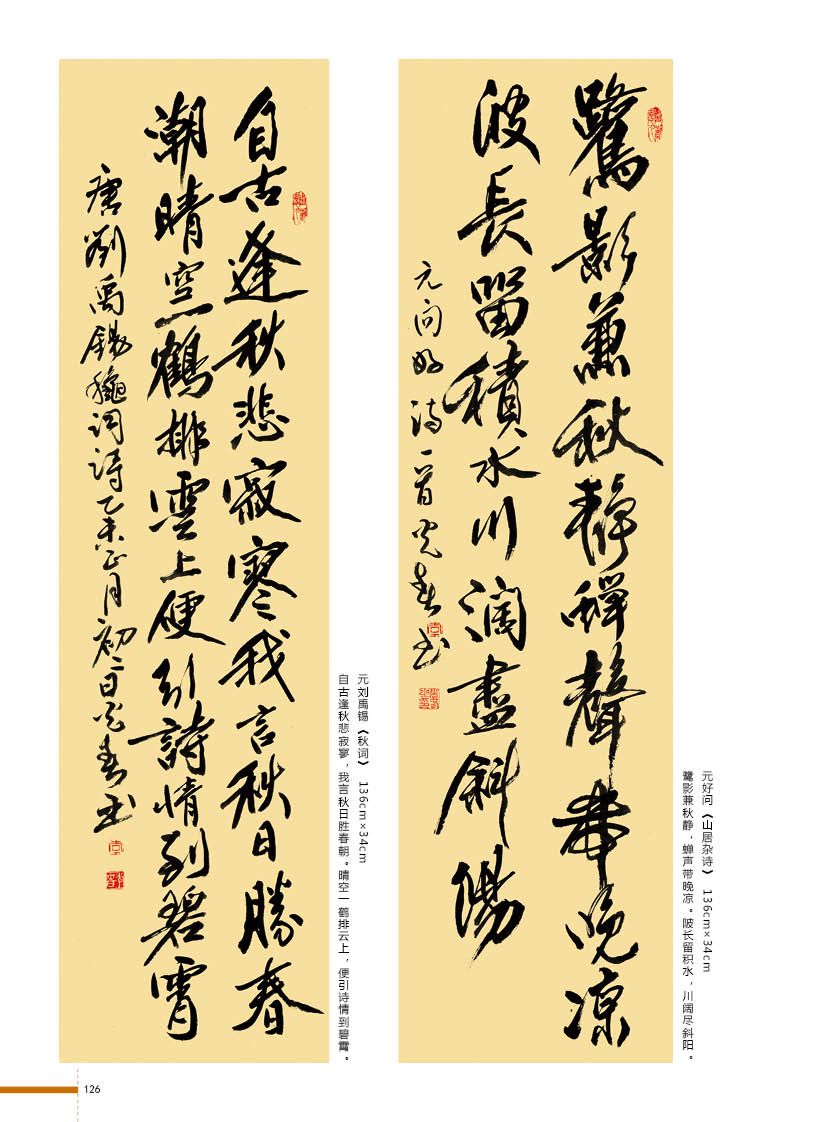 元好问《山居杂诗》 136cm×34cm
鹭影兼秋静，蝉声带晚凉。陂长留积水，川阔尽斜阳。
鷺影兼秋静蟬聲帶晚凉
波長留積水川濶盡斜陽
元问好诗一首光春书
元刘禹锡《秋词》 136cm×34cm
自古逢秋悲寂寥，我言秋日胜春朝。晴空一鹤排云上，便引诗情到碧霄。
自古逢秋悲寂寥我言秋日勝春
潮晴空一鶴排雲上便引詩情到碧霄
唐劉禹錫穐词诗乙未正月初二日光春书
126